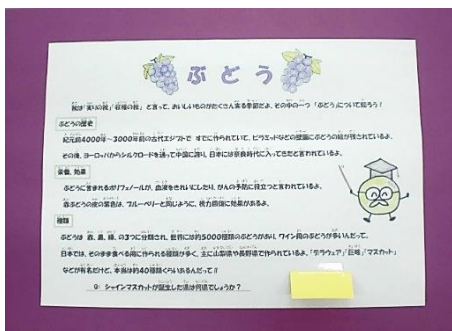 ぶどう
秋は「実りの秋」「収穫の秋」と言って、おいしいものがたくさん実る季節だよ。その中の一つ「ぶどう」について知ろう！
ぶどうの歴史
紀元前4000年～3000年前の古代エジプトで すでに作られていて、ピラミッドなどの壁画にぶどうの絵が残されているよ。
その後、ヨーロッパからシルクロードを通って中国に渡り、日本には奈良時代に入ってきたと言われているよ。
栄養、効果
ぶどうに含まれるポリフェノールが、血液をきれいにしたり、がんの予防に役立つと言われているよ。
赤ぶどうの皮の紫色は、ブルーベリーと同じように、視力回復に効果があるよ。
種類
ぶどうは 赤、黒、緑、の3つに分類され、世界には約5000種類のぶどうがあり、ワイン用のぶどうが多いんだって。
日本では、そのまま食べる用に作られる種類が多く、主に山梨県や長野県で作られているよ。「デラウェア」「巨峰」「マスカット」
などが有名だけど、本当は約40種類くらいあるんだって！！
Q：シャインマスカットが誕生した県は何県でしょうか？